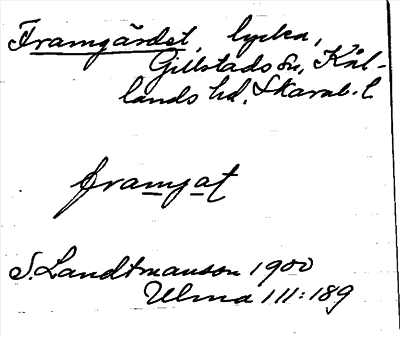 Framgärdet, lycka,
Gillstads sn, Kål-
lands hd, Skarab. l.
framgat
S. Landtmanson 1900
Ulma 111:189